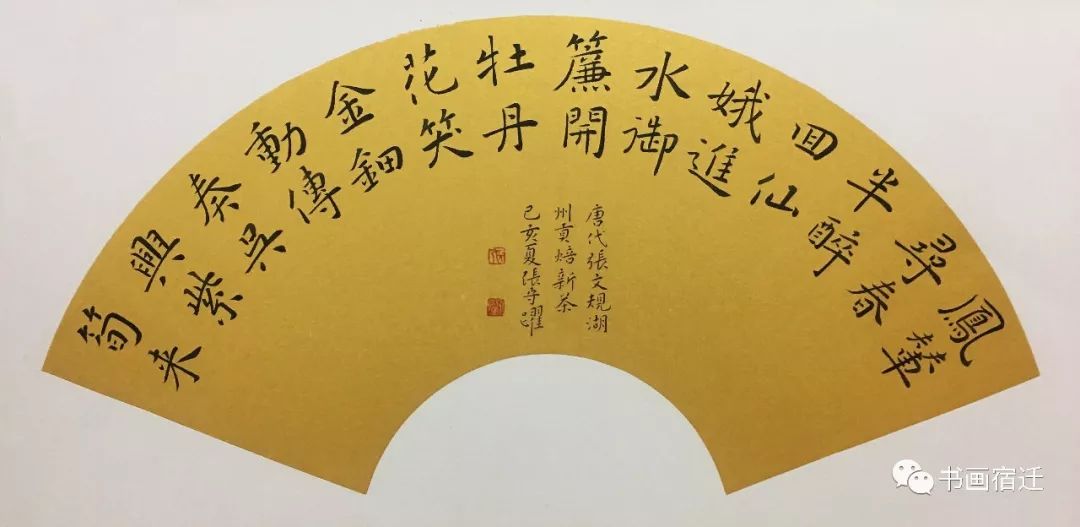 鳳輦
尋春
半醉
回仙
娥進
水御
簾開
牡丹
花笑
金鈿
動傳
奏吳
興紫
筍来
唐代張文規湖
州貢焙新茶
己亥夏張守躍
书画宿迁